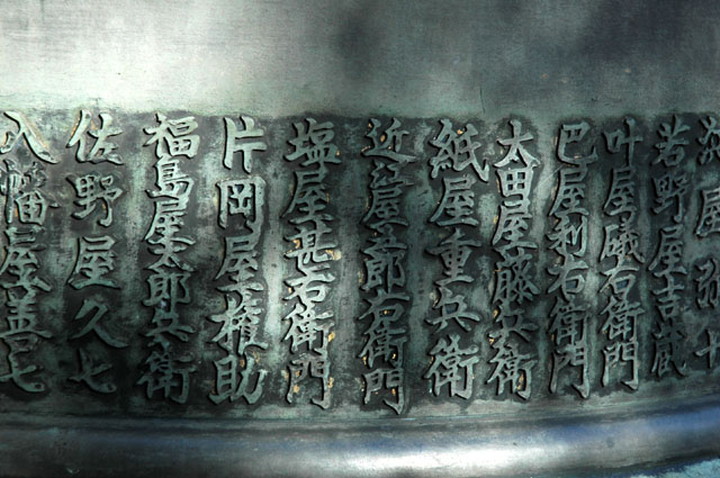 屋弥七
若野屋吉蔵
叶屋儀右衛門
巴屋利右衛門
太田屋藤兵衛
紙屋重兵衛
近江屋五郎右衛門
塩屋甚右衛門
片岡屋権助
福島屋太郎兵衛
佐野屋久七
八幡屋善七